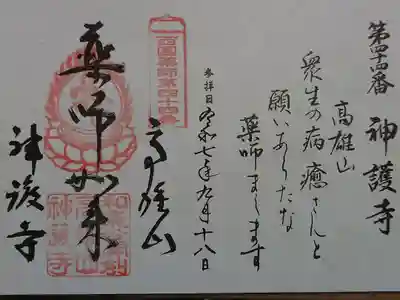 第四十四番 神護寺
高雄山
衆生の病癒さんと
願いあらたな
薬師まします
参拝日 令和七年九月十八日
西國薬師第四十四番
高雄山
薬師如来
神護寺